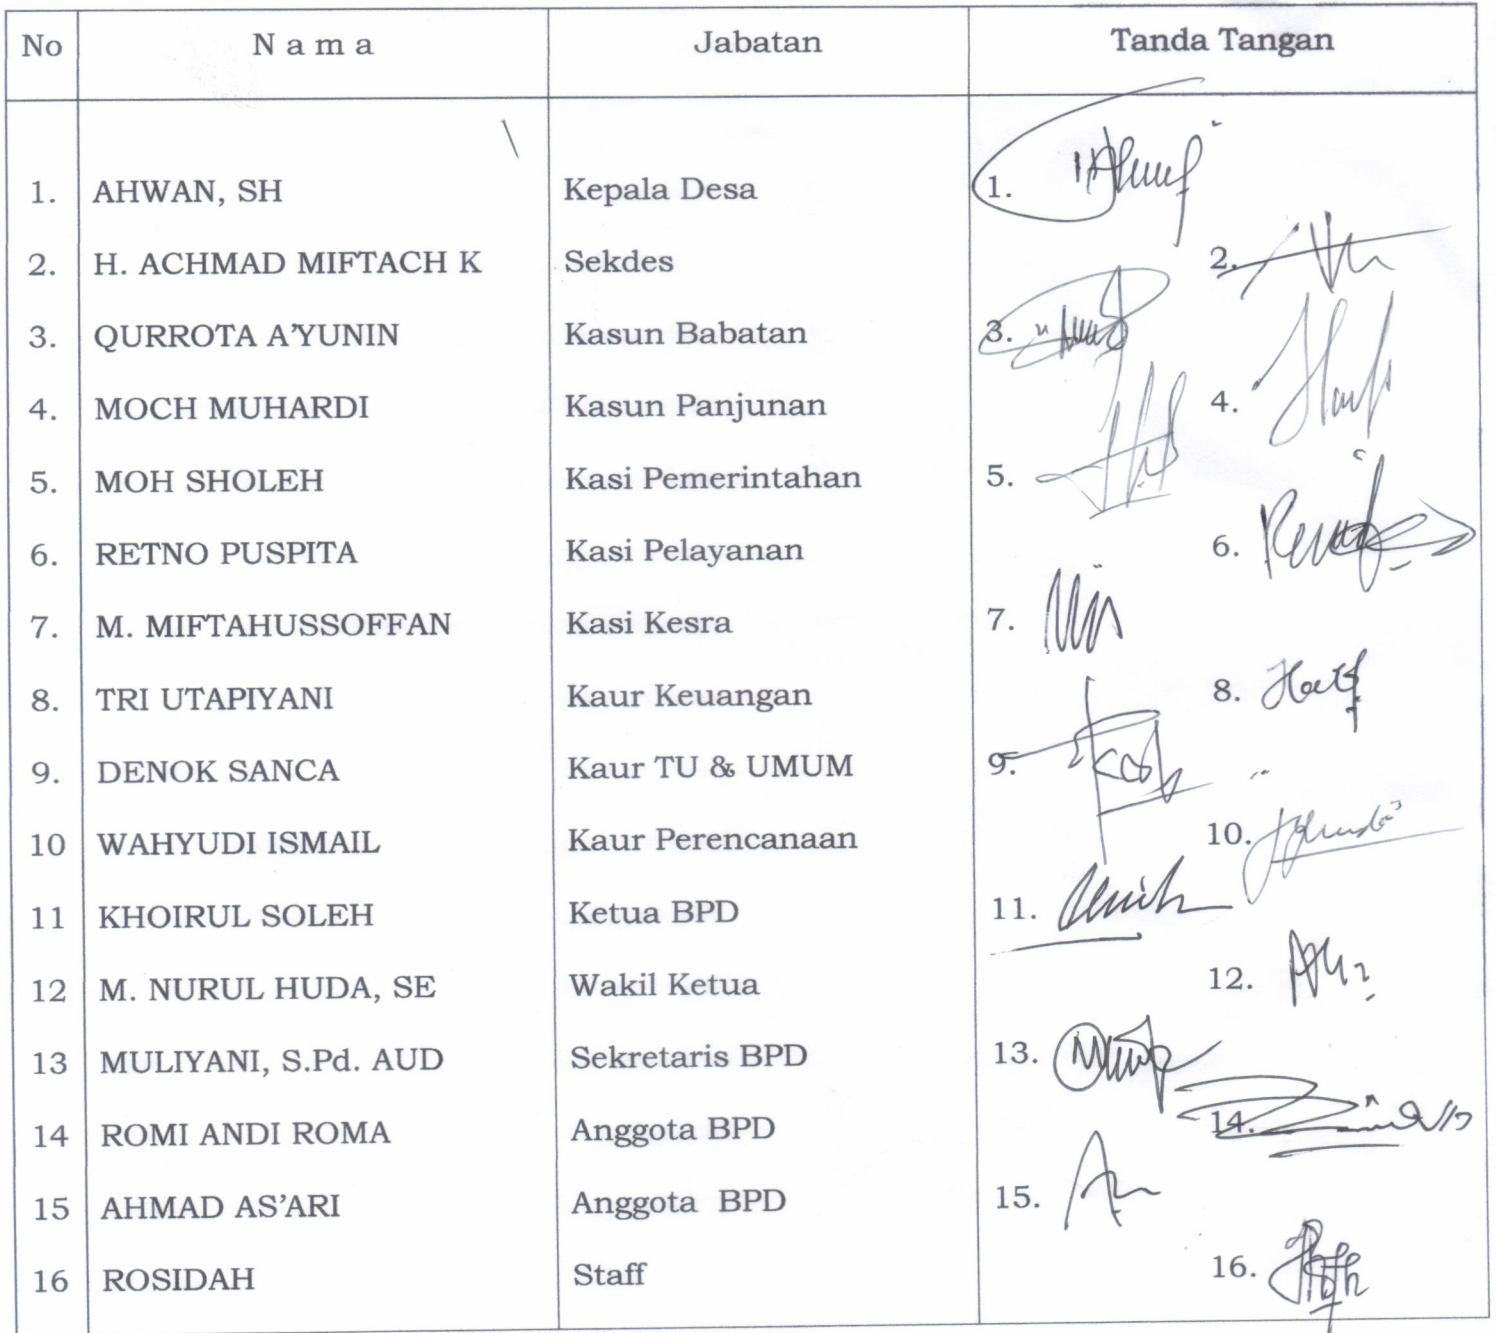 No N a m a Jabatan Tanda Tangan
1. AHWAN, SH Kepala Desa 1.
2. H. ACHMAD MIFTACH K Sekdes 2.
3. QURROTA A'YUNIN Kasun Babatan 3.
4. MOCH MUHARDI Kasun Panjunan 4.
5. MOH SHOLEH Kasi Pemerintahan 5.
6. RETNO PUSPITA Kasi Pelayanan 6.
7. M. MIFTAHUSSOFFAN Kasi Kesra 7.
8. TRI UTAPIYANI Kaur Keuangan 8.
9. DENOK SANCA Kaur TU & UMUM 9.
10 WAHYUDI ISMAIL Kaur Perencanaan 10.
11 KHOIRUL SOLEH Ketua BPD 11.
12 M. NURUL HUDA, SE Wakil Ketua 12.
13 MULIYANI, S.Pd. AUD Sekretaris BPD 13.
14 ROMI ANDI ROMA Anggota BPD 14.
15 AHMAD AS'ARI Anggota BPD 15.
16 ROSIDAH Staff 16.